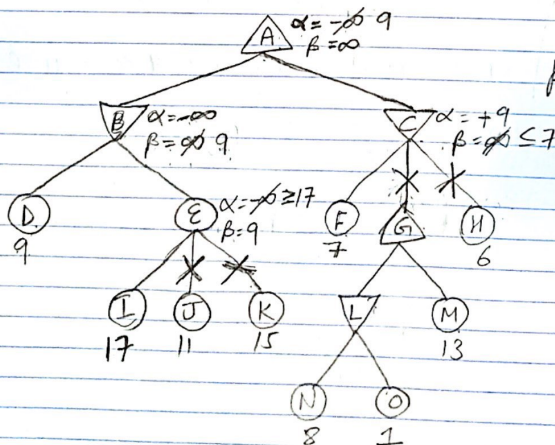 A α = -∞ 9
β = ∞
B α = -∞
β = ∞ 9
C α = +9
β = ∞ ≤ 7
D
9
E α = -∞ ≥ 17
β = 9
F
7
G
H
6
I
17
J
11
K
15
L
M
13
N
8
O
1